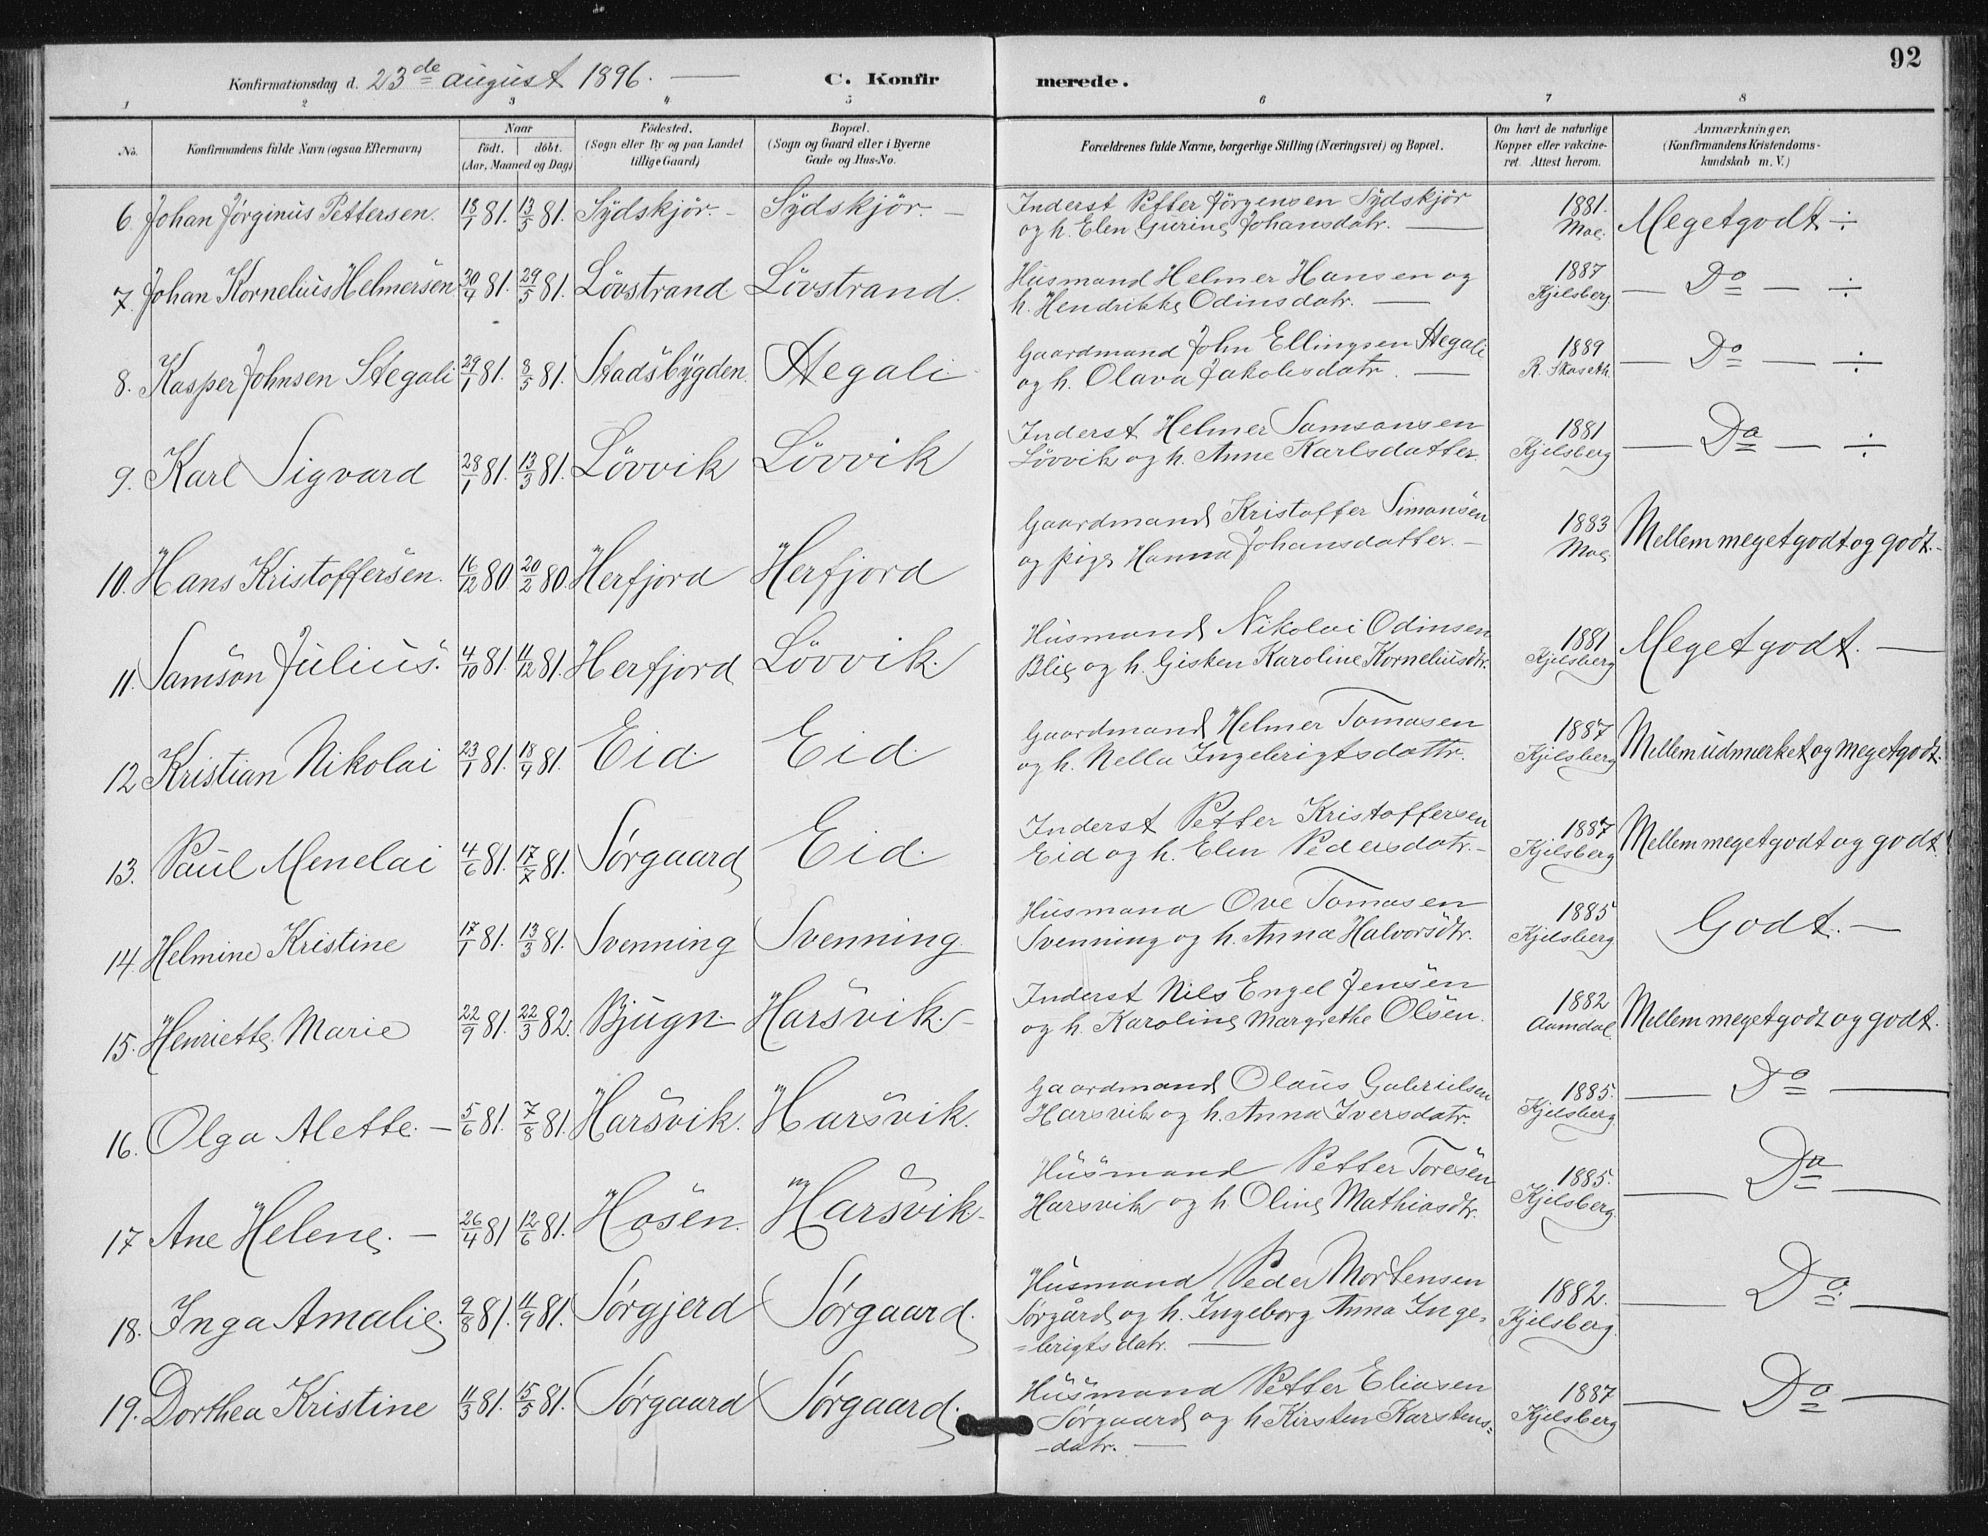 92
Konfirmationsdag d. 23de august 1896. — C. Konfirmerede.
1 2 3 4 5 6 7 8
No. Konfirmandens fulde Navn (ogsaa Efternavn) Naar födt. döbt. (Aar, Maaned og Dag) Födested. (Sogn eller By og paa Landet tillige Gaard) Bopæl. (Sogn og Gaard eller i Byerne Gade og Hus-No. Forældrenes fulde Navne, borgerlige Stilling (Næringsvei) og Bopæl. Om havt de naturlige Kopper eller vakcineret. Attest herom. Anmærkninger. (Konfirmandens Kristendomskundskab m. V.)
6. Johan Jørginus Pettersen. 13/1 81. 13/5 81. Sydskjör. – Sydskjör. – Inderst Petter Jörgensen Sydskjör 1881. Megetgodt ÷
og h. Elen Gurine Johansdatr. — Moe
7. Johan Kornelius Helmersen 30/4 81. 29/5 81. Lövstrand Lövstrand. Husmand Helmer Hansen og 1887 — Do — ÷
h. Hendrikke Odinsdatr. — Kjelsberg
8. Kasper Johnsen Stegali 29/1 81. 8/5 81. Stadsbygden Stegali Gaardmand John Ellingsen Stegali 1889 — Do — ÷
og h. Olava Jakobsdatr. — R. Skaseth
9. Karl Sigvard 28/1 81. 13/3 81. Lövvik Lövvik Inderst Helmer Samsonsen 1881 — Do — ÷
Lövvik og h. Anne Karlsdatter. Kjelsberg
10. Hans Kristoffersen. 16/12 80 20/2 80. Herfjord Herfjord Gaardmand Kristoffer Simonsen 1883 Mellem megetgodt og godt. –
og pige Hanna Johansdatter. – Moe
11. Samson Julius. 4/10 81. 4/12 81. Herfjord Lövvik. Husmand Nikolai Odinsen 1881 Megetgodt. —
Blie og h. Gisken Karoline Korneliusdtr. Kjelsberg
12 Kristian Nikolai 23/1 81. 18/4 81. Eid. Eid. Gaardmand Helmer Tomasen 1887 Mellem udmærket og megetgodt.
og h. Nella Ingebrigtsdattr. Kjelsberg
13. Paul Menelai 4/6 81. 17/7 81. Sørgaard Eid. Inderst Petter Kristoffersen 1887 Mellem megetgodt og godt.
Eid og h. Elen Pedersdatr. – Kjelsberg
14. Helmine Kristine 17/1 81. 13/3 81. Svenning Svenning. Husmand Ove Tomasen 1885 Godt. –
Svenning og h. Anna Halvorsdtr. Kjelsberg.
15. Henriette Marie 22/9 81. 22/3 82. Bjugn. Harsvik. – Inderst Nils Engel Jensen 1882 Mellem megetgodt og godt.
og h. Karoline Margrethe Olsen. Aamdal.
16. Olga Alette. – 5/6 81. 7/8 81. Harsvik. Harsvik. Gaardmand Olaus Gabrielsen 1885. — Do —
Harsvik og h. Anna Iversdatr. Kjelsberg.
17 Ane Helene. – 26/4 81 12/6 81. Hosen. Harsvik. Husmand Petter Toresen 1885. — Do —
Harsvik og h. Oline Mathiasdtr. Kjelsberg.
18. Inga Amalie. 9/8 81. 4/9 81. Sørgjerd Sørgaard. Husmand Peder Mortensen 1882. — Do. —
Sørgård og h. Ingeborg Anna Inge= Kjelsberg.
=brigtsdatr. —
19. Dorthea Kristine 11/3 81. 15/5 81. Sørgaard Sørgaard. Husmand Petter Eliasen 1887 — Do —
Sørgaard og h Kirsten Karstens= Kjelsberg
–datr. –